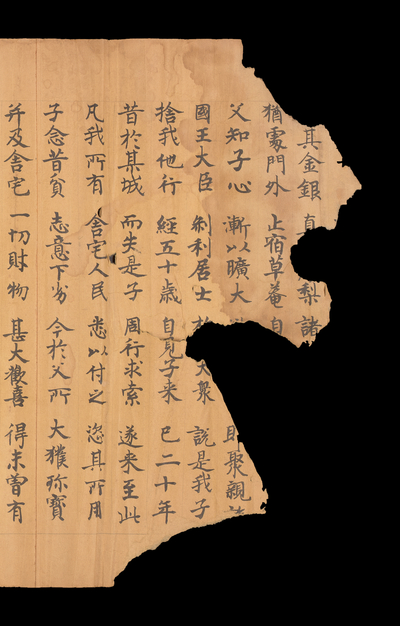 其金銀 真 梨 諸
猶處門外 止宿草菴 自
父知子心 漸以曠大 即聚親
國王大臣 剎利居士 於 大衆 說是我子
捨我他行 經五十歲 自見子來 已二十年
昔於某城 而失是子 周行求索 遂來至此
凡我所有 舍宅人民 悉以付之 恣其所用
子念昔貧 志意下劣 今於父所 大獲珎寶
并及舍宅 一切財物 甚大歡喜 得未曾有